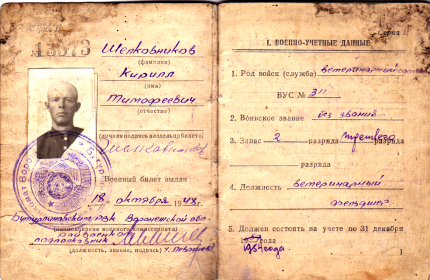 Шелковников
(фамилия)
Кирилл
(имя)
Тимофеевич
(отчество)
(личная подпись владельца билета)
Военный билет выдан
18. октября 1948 г.
Бутурлиновским РВК Воронежской обл.
(наименование военного комиссариата)
Райвоенком
подполковник
(должность, звание, подпись)
Серия
I. ВОЕННО-УЧЕТНЫЕ ДАННЫЕ
1. Род войск (служба) ветеринарный состав
ВУС № 311
2. Воинское звание без звания
3. Запас 2 разряда третьего разряда
разряда
4. Должность ветеринарный
фельдшер
5. Должен состоять на учете по 31 декабря
года
1